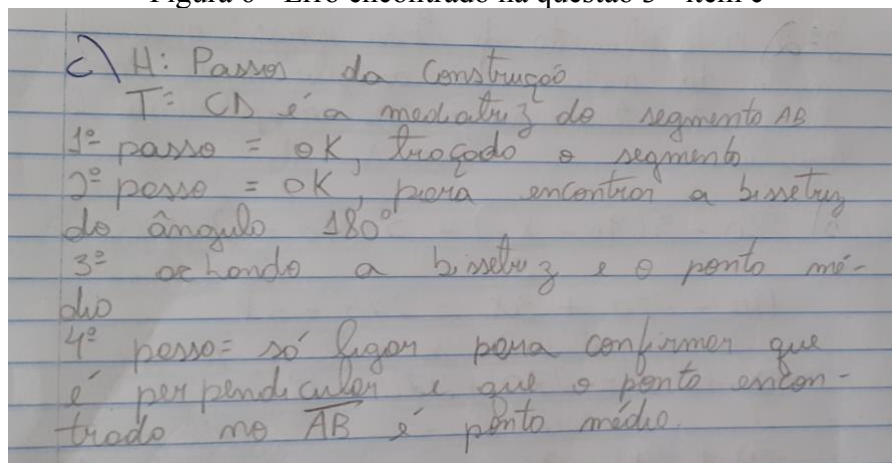 Figura 6 - Erro encontrado na questão 3 - item c
c) H: Passos da Construção
T: CD é a mediatriz do segmento AB
1º passo = OK, traçado o segmento
2º passo = OK, para encontrar a bissetriz
do ângulo 180º
3º achando a bissetriz e o ponto mé-
dio
4º passo = só ligar para confirmar que
é perpendicular e que o ponto encon-
trado no AB é ponto médio.